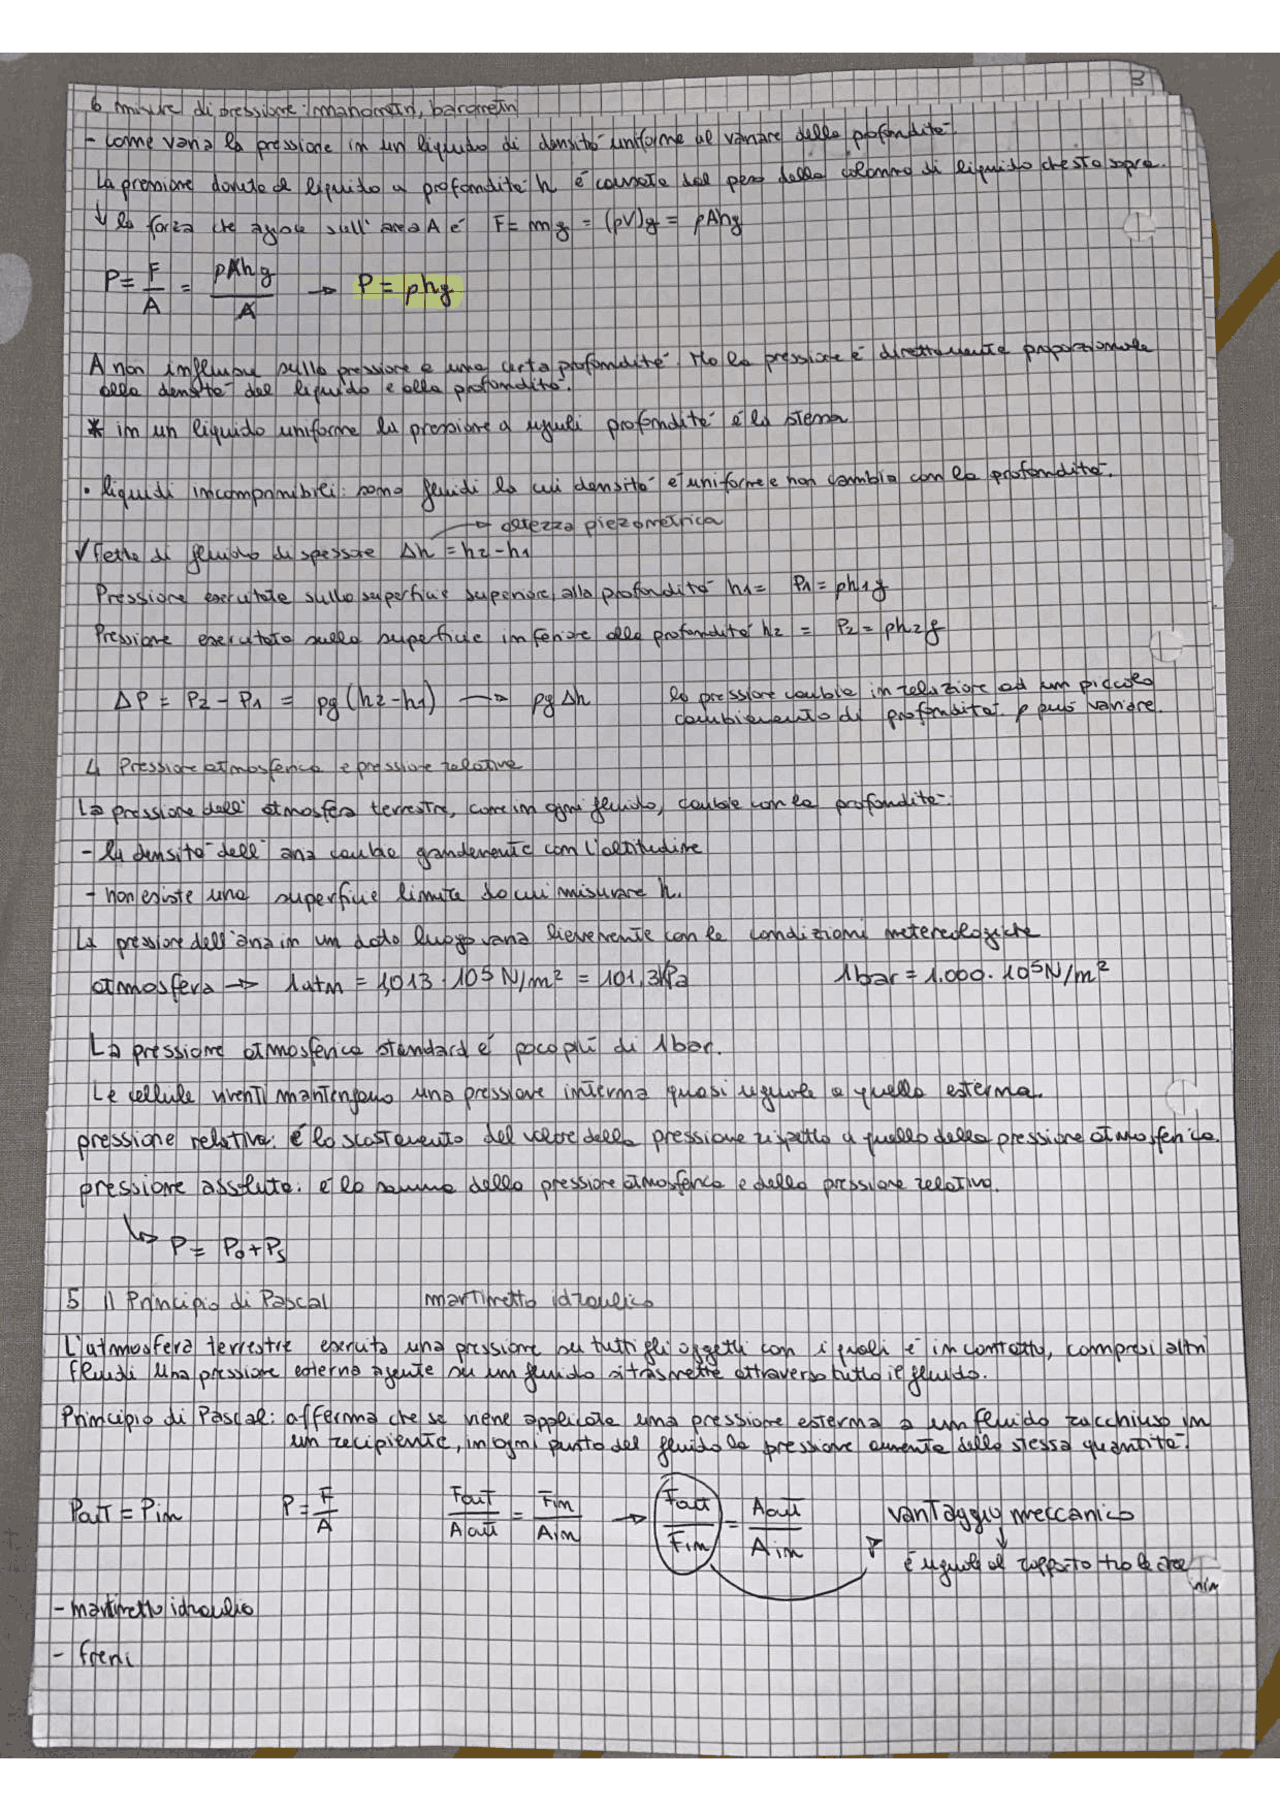 3
6 misure di pressione: manometri, barometri
- come varia la pressione in un liquido di densità uniforme al variare della profondità.
La pressione dovuta al liquido a profondità h è causata dal peso della colonna di liquido che sta sopra.
↓ la forza che agisce sull'area A è F = mg = (ρV)g = ρAhg
P = F/A = ρAhg/A → P = ρhg
A non influisce sulla pressione a una certa profondità. Ma la pressione è direttamente proporzionale
alla densità del liquido e alla profondità.
* in un liquido uniforme la pressione a uguali profondità è la stessa
• liquidi incomprimibili: sono fluidi la cui densità è uniforme e non cambia con la profondità.
→ altezza piezometrica
√ Fetta di fluido di spessore Δh = h2 - h1
Pressione esercitata sulla superficie superiore, alla profondità h1 = P1 = ρh1g
Pressione esercitata sulla superficie inferiore alla profondità h2 = P2 = ρh2g
ΔP = P2 - P1 = ρg(h2-h1) → ρgΔh
la pressione cambia in relazione ad un piccolo
cambiamento di profondità. ρ può variare.
4 Pressione atmosferica e pressione relativa
La pressione dell'atmosfera terrestre, come in ogni fluido, cambia con la profondità:
- la densità dell'aria cambia grandemente con l'altitudine
- non esiste una superficie limite da cui misurare h.
La pressione dell'aria in un dato luogo varia lievemente con le condizioni metereologiche
atmosfera → 1atm = 1,013 · 10⁵ N/m² = 101,3kPa 1bar = 1.000 · 10⁵N/m²
La pressione atmosferica standard è poco più di 1bar.
Le cellule viventi mantengono una pressione interna quasi uguale a quella esterna.
pressione relativa: è lo scostamento del valore della pressione rispetto a quello della pressione atmosferica.
pressione assoluta: è la somma della pressione atmosferica e della pressione relativa.
↳ P = P0 + Ps
5 il Principio di Pascal martinetto idraulico
L'atmosfera terrestre esercita una pressione su tutti gli oggetti con i quali è in contatto, compresi altri
fluidi. Una pressione esterna agente su un fluido si trasmette attraverso tutto il fluido.
Principio di Pascal: afferma che se viene applicata una pressione esterna a un fluido racchiuso in
un recipiente, in ogni punto del fluido la pressione aumenta della stessa quantità.
Pout = Pin P = F/A Fout/Aout = Fin/Ain → Fout/Fin = Aout/Ain vantaggio meccanico
↓
è uguale al rapporto tra le aree
- martinetto idraulio
- freni